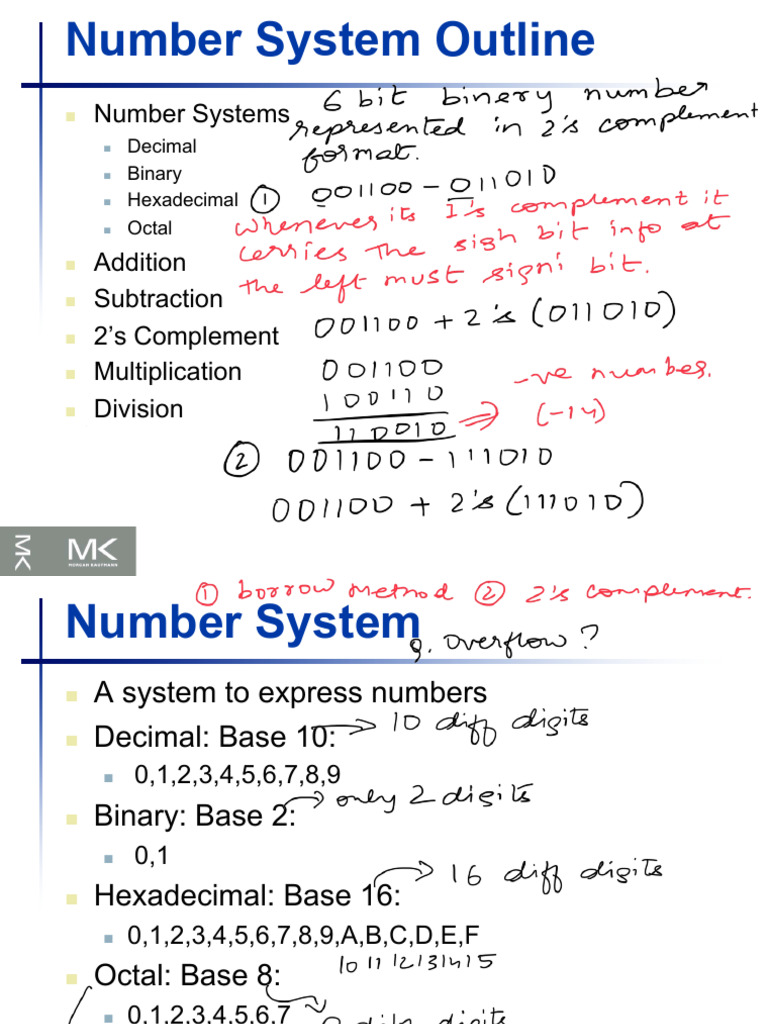 Number System Outline
6 bit binery number
Number Systems
represented in 2's complement
Decimal
format.
Binary
Hexadecimal
① 001100 - 011010
Octal
whenever its 1's complement it
carries the sigh bit info at
the left must signi bit.
Addition
Subtraction
001100 + 2's (011010)
2's Complement
001100
Multiplication
100110
-ve number.
Division
110010 ⇒ (-14)
② 001100 - 111010
001100 + 2's (111010)
MK
MK
MORGAN KAUFMANN
① borrow method ② 2's complement.
Number System
g. overflow?
A system to express numbers
Decimal: Base 10: → 10 diff digits
0,1,2,3,4,5,6,7,8,9
Binary: Base 2: → only 2 digits
0,1
Hexadecimal: Base 16: → 16 diff digits
0,1,2,3,4,5,6,7,8,9,A,B,C,D,E,F
10 11 12 13 14 15
Octal: Base 8:
0,1,2,3,4,5,6,7
digits